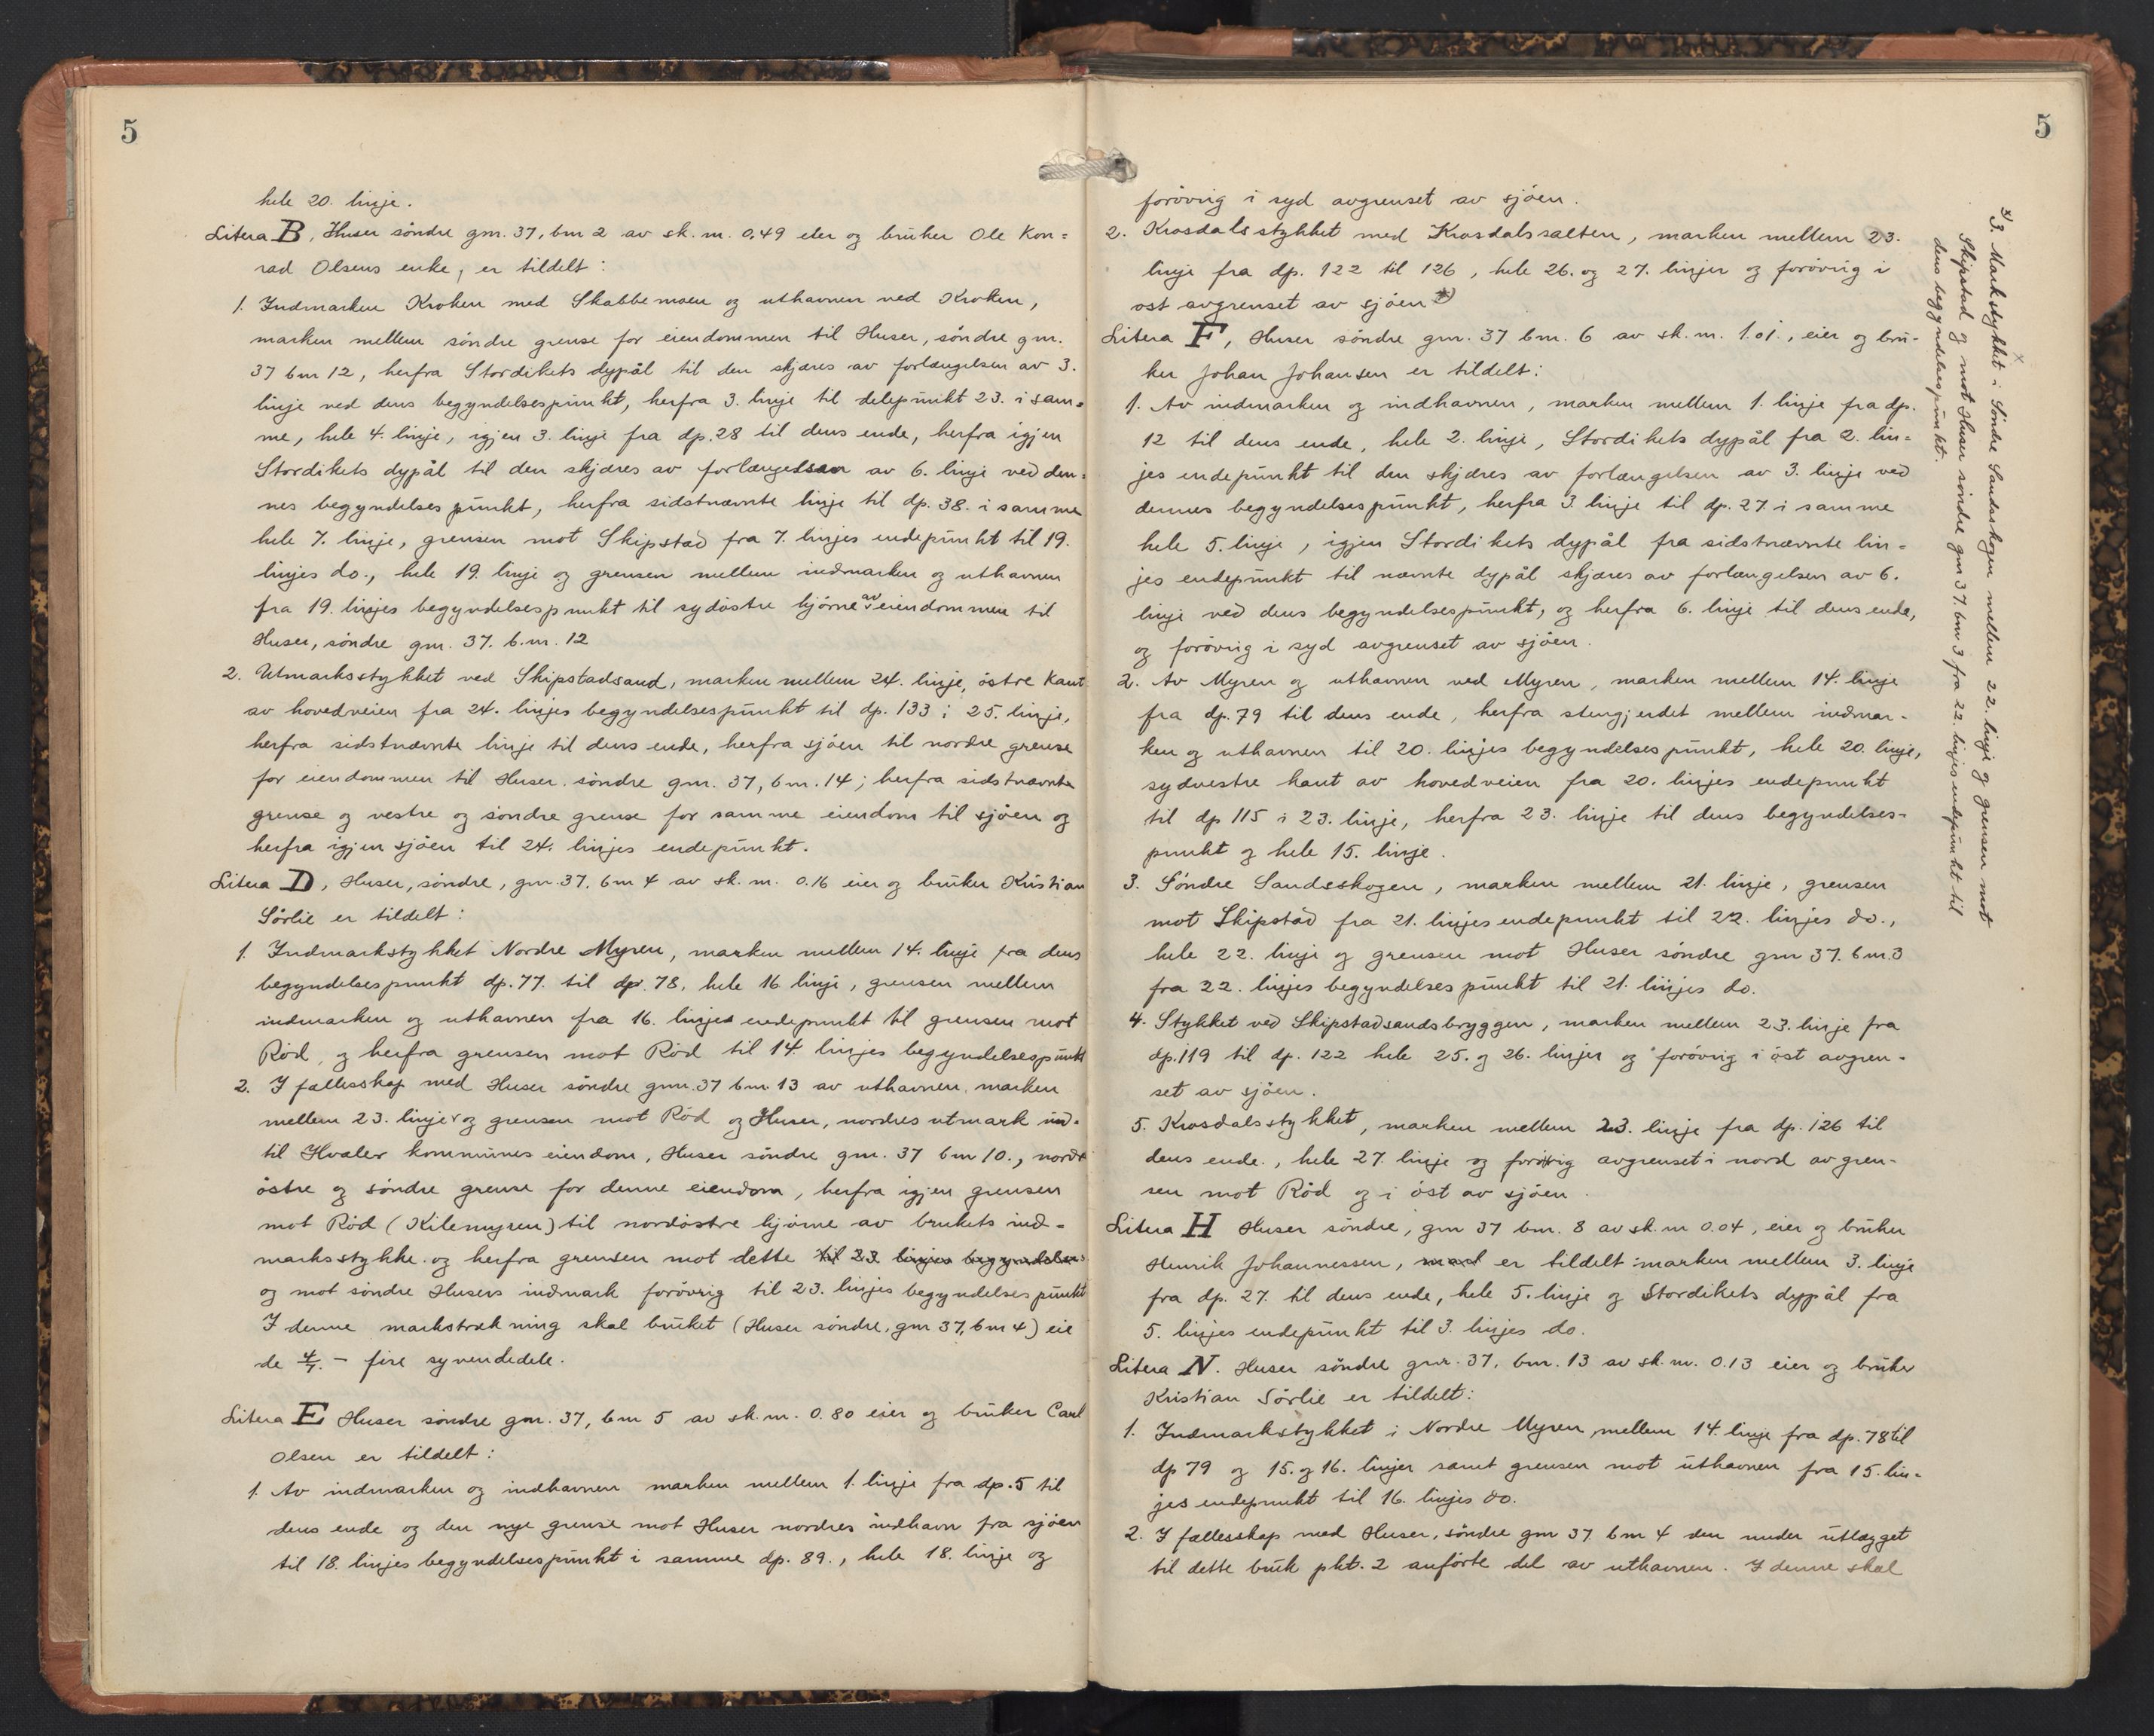 5
hele 20. linje.
Litera B, Huser söndre gnr. 37, bnr 2 av sk. m. 0,49 eier og bruker Ole Kon=
rad Olsens enke, er tildelt:
1. Indmarken Kroken med Skabbemoen og uthavnen ved Kroken,
marken mellem söndre grense for eiendommen til Huser, söndre gnr.
37 bnr 12, herfra Stordikets dypål til den skjæres av forlængelsen av 3.
linje ved dens begyndelsespunkt, herfra 3. linje til delepunkt 23. i sam=
me, hele 4. linje, igjen 3. linje fra dp. 28 til dens ende, herfra igjen
Stordikets dypål til den skjæres av forlængelsen av 6. linje ved den=
nes begyndelsespunkt, herfra sidstnævnte linje til dp. 38. i samme
hele 7. linje, grensen mot Skipstad fra 7. linjes endepunkt til 19.
linjes do., hele 19. linje og grensen mellem indmarken og uthavnen
fra 19. linjes begyndelsespunkt til sydöstre hjörne av eiendommen til
Huser, söndre gnr. 37. b.nr. 12
2. Utmarksstykket ved Skipstadsand, marken mellem 24. linje, östre kant
av hovedveien fra 24. linjes begyndelsespunkt til dp. 133 i 25. linje,
herfra sidstnævnte linje til dens ende, herfra sjöen til nordre grense
for eiendommen til Huser söndre gnr. 37, bnr. 14; herfra sidstnævnte
grense og vestre og söndre grense for samme eiendom til sjöen og
herfra igjen sjöen til 24. linjes endepunkt.
Litera D, Huser, söndre, gnr. 37. bnr 4 av sk. m. 0.16 eier og bruker Kristian
Sörlie er tildelt:
1. Indmarkstykket Nordre Myren, marken mellem 14. linje fra dens
begyndelsespunkt dp. 77. til dp. 78, hele 16 linje, grensen mellem
indmarken og uthavnen fra 16. linjes endepunkt til grensen mot
Röd, og herfra grensen mot Röd til 14. linjes begyndelsespunkt
2. I fællesskap med Huser söndre gnr. 37 bnr 13 av uthavnen, marken
mellem 23. linje og grensen mot Röd og Huser, nordres utmark ind=
til Hvaler kommunes eiendom, Huser söndre gnr. 37 bnr 10., nordr
östre og söndre grense for denne eiendom, herfra igjen grensen
mot Röd (Kilemyren) til nordöstre hjörne av brukets ind=
marksstykke og herfra grensen mot dette til 23 linjes begyndelses=
og mot söndre Husers indmark forövrig til 23. linjes begyndelsespunkt
I denne markstrækning skal bruket (Huser söndre, gnr 37, bnr 4) eie
de 4/7. - fire syvendedele.
Litera E Huser söndre gnr. 37, bnr 5 av sk. m. 0.80 eier og bruker Carl
Olsen er tildelt:
1. Av indmarken og indhavnen marken mellem 1. linje fra dp. 5 til
dens ende og den nye grense mot Huser nordres indhavn fra sjöen
til 18. linjes begyndelsespunkt i samme dp. 89., hele 18. linje og
5
forövrig i syd avgrenset av sjöen.
2. Krosdalsstykket med Krosdalssalten, marken mellem 23.
linje fra dp. 122 til 126, hele 26. og 27. linjer og forövrig i
ost avgrenset av sjöen *)
Litera F, Huser söndre gnr. 37 bnr. 6 av sk. m. 1.01., eier og bru-
ker Johan Johansen er tildelt:
1. Av indmarken og indhavnen, marken mellem 1. linje fra dp.
12 til dens ende, hele 2. linje, Stordikets dypål fra 2. lin=
jes endepunkt til den skjæres av forlængelsen av 3. linje ved
dennes begyndelsespunkt, herfra 3. linje til dp. 27. i samme
hele 5. linje, igjen Stordikets dypål fra sidstnævnte lin=
jes endepunkt til nævnte dypål skjæres av forlængelsen av 6.
linje ved dens begyndelsespunkt, og herfra 6. linje til dens ende,
og forövrig i syd avgrenset av sjöen.
2. Av Myren og uthavnen ved Myren, marken mellem 14. linje
fra dp. 79 til dens ende, herfra stengjerdet mellem indmar-
ken og uthavnen til 20. linjes begyndelsespunkt, hele 20. linje,
sydvestre kant av hovedveien fra 20. linjes endepunkt
til dp 115 i 23. linje, herfra 23. linje til dens begyndelses-
punkt og hele 15. linje.
3. Söndre Sandeskogen, marken mellem 21. linje, grensen
mot Skipstad fra 21. linjes endepunkt til 22. linjes do.,
hele 22. linje og grensen mot Huser söndre gnr 37. bnr. 3
fra 22. linjes begyndelsespunkt til 21. linjes do.
4. Stykket ved Skipstadsandsbryggen, marken mellem 23. linje fra
dp. 119 til dp. 122 hele 25. og 26. linjer og forövrig i öst avgren-
set av sjöen.
5. Krosdalsstykket, marken mellem 23. linje fra dp. 126 til
dens ende., hele 27. linje og forövrig avgrenset i nord av gren-
sen mot Röd og i öst av sjöen.
Litera H Huser söndre, gnr 37 bnr. 8 av sk. m 0.04, eier og bruker
Henrik Johannessen, er tildelt: marken mellem 3. linje
fra dp. 27. til dens ende, hele 5. linje og Stordikets dypål fra
5. linjes endepunkt til 3. linjes do.
Litera N. Huser söndre gnr. 37, bnr. 13 av sk. m. 0.13 eier og bruker
Kristian Sörlie er tildelt:
1. Indmarkstykket i Nordre Myren, mellem 14. linje fra dp. 78 til
dp 79 og 15. og 16. linjer samt grensen mot uthavnen fra 15. lin=
jes endepunkt til 16. linjes do.
2. I fællesskap med Huser, söndre gnr 37 bnr 4 den under utlægget
til dette bruk pkt. 2 anförte del av uthavnen. I denne skal
*) 3. Markstykket i Söndre Sandsskogen mellem 22. linje og grensen mot
Skipstad og mot Huser söndre gnr 37. bnr 3 fra 22. linjes endepunkt til
dens begyndelsespunkt.